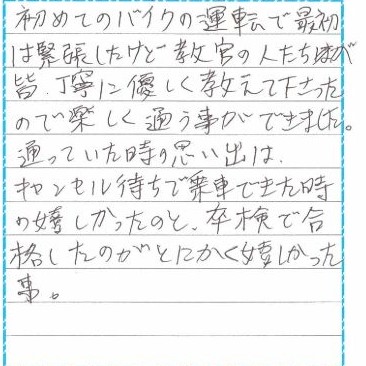 初めてのバイクの運転で最初
は緊張したけど教官の人たちが
皆、丁寧に優しく教えて下さった
ので楽しく通う事ができました。
通っていた時の思い出は、
キャンセル待ちで乗車できた時
の嬉しかったのと、卒検で合
格したのがとにかく嬉しかった
事。